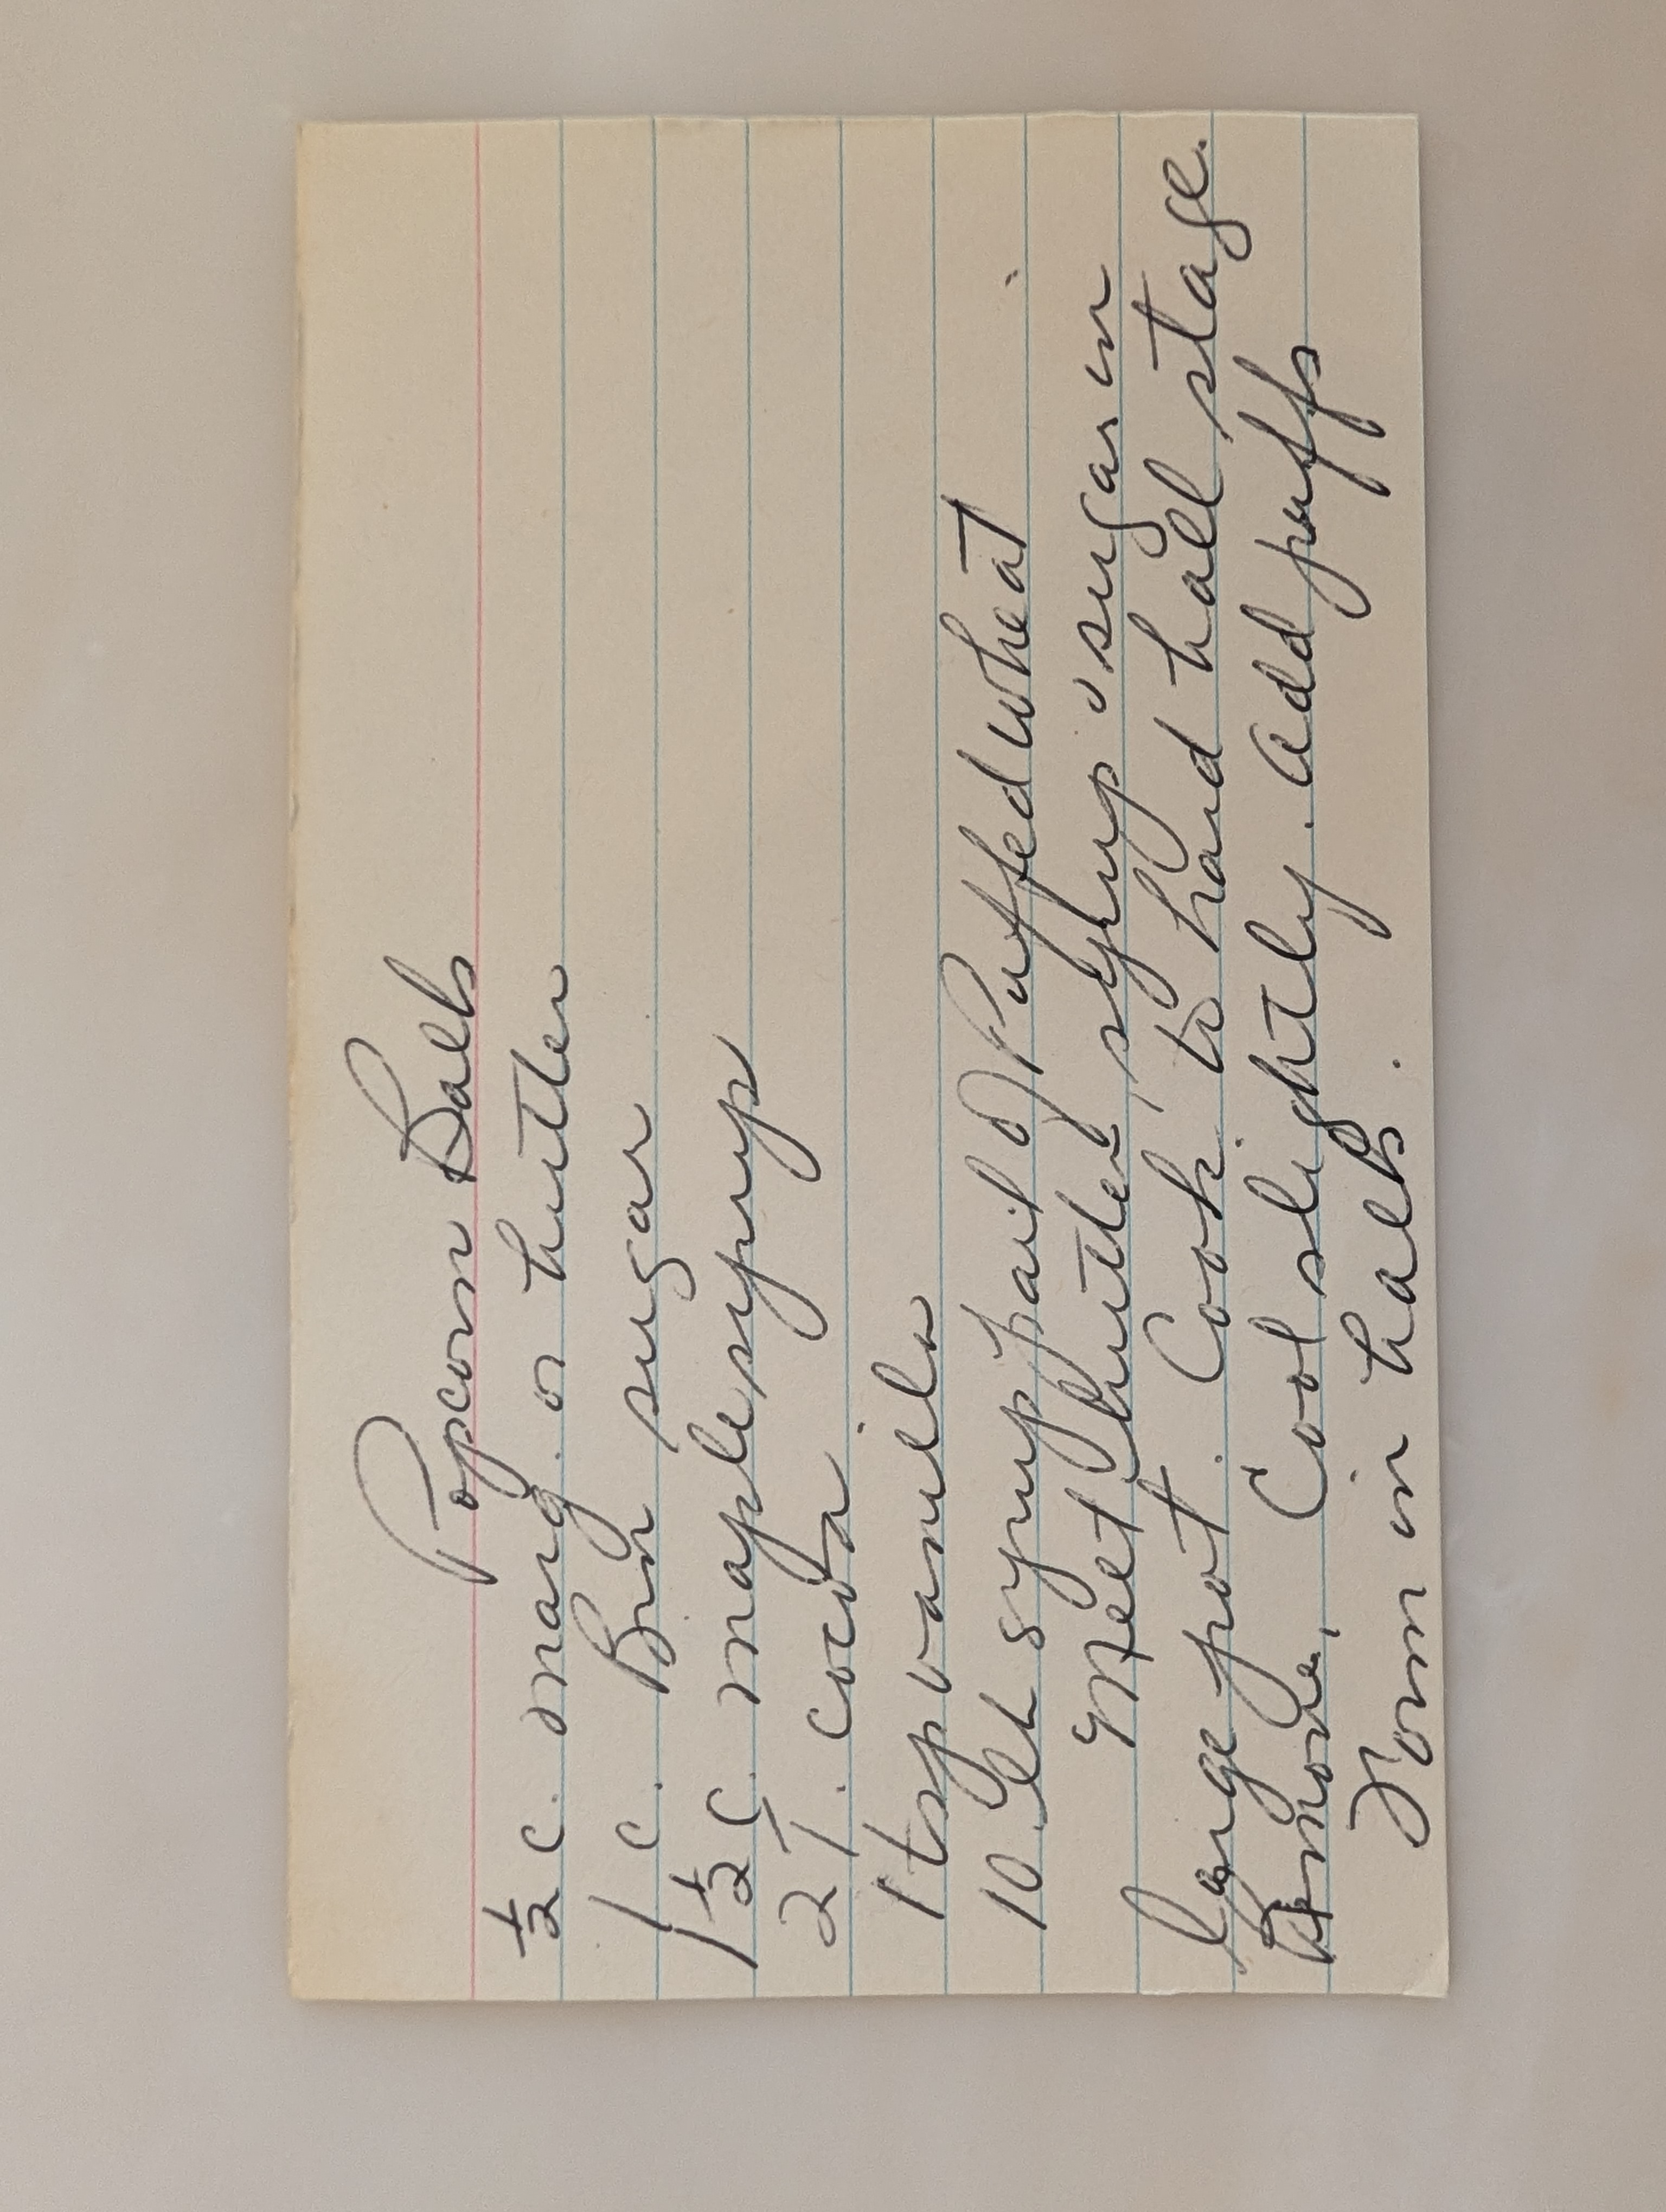 Popcorn Balls
½ c. marg. or butter
1 c. Brn sugar
1½ c. maple syrup
2 T. cocoa
1 tsp vanila
10 lb syrup pail of Puffed wheat
Melt butter, syrup & sugar in
large pot. Cook to hard ball stage.
Remove, Cool slightly. Add puffs
Form in balls.